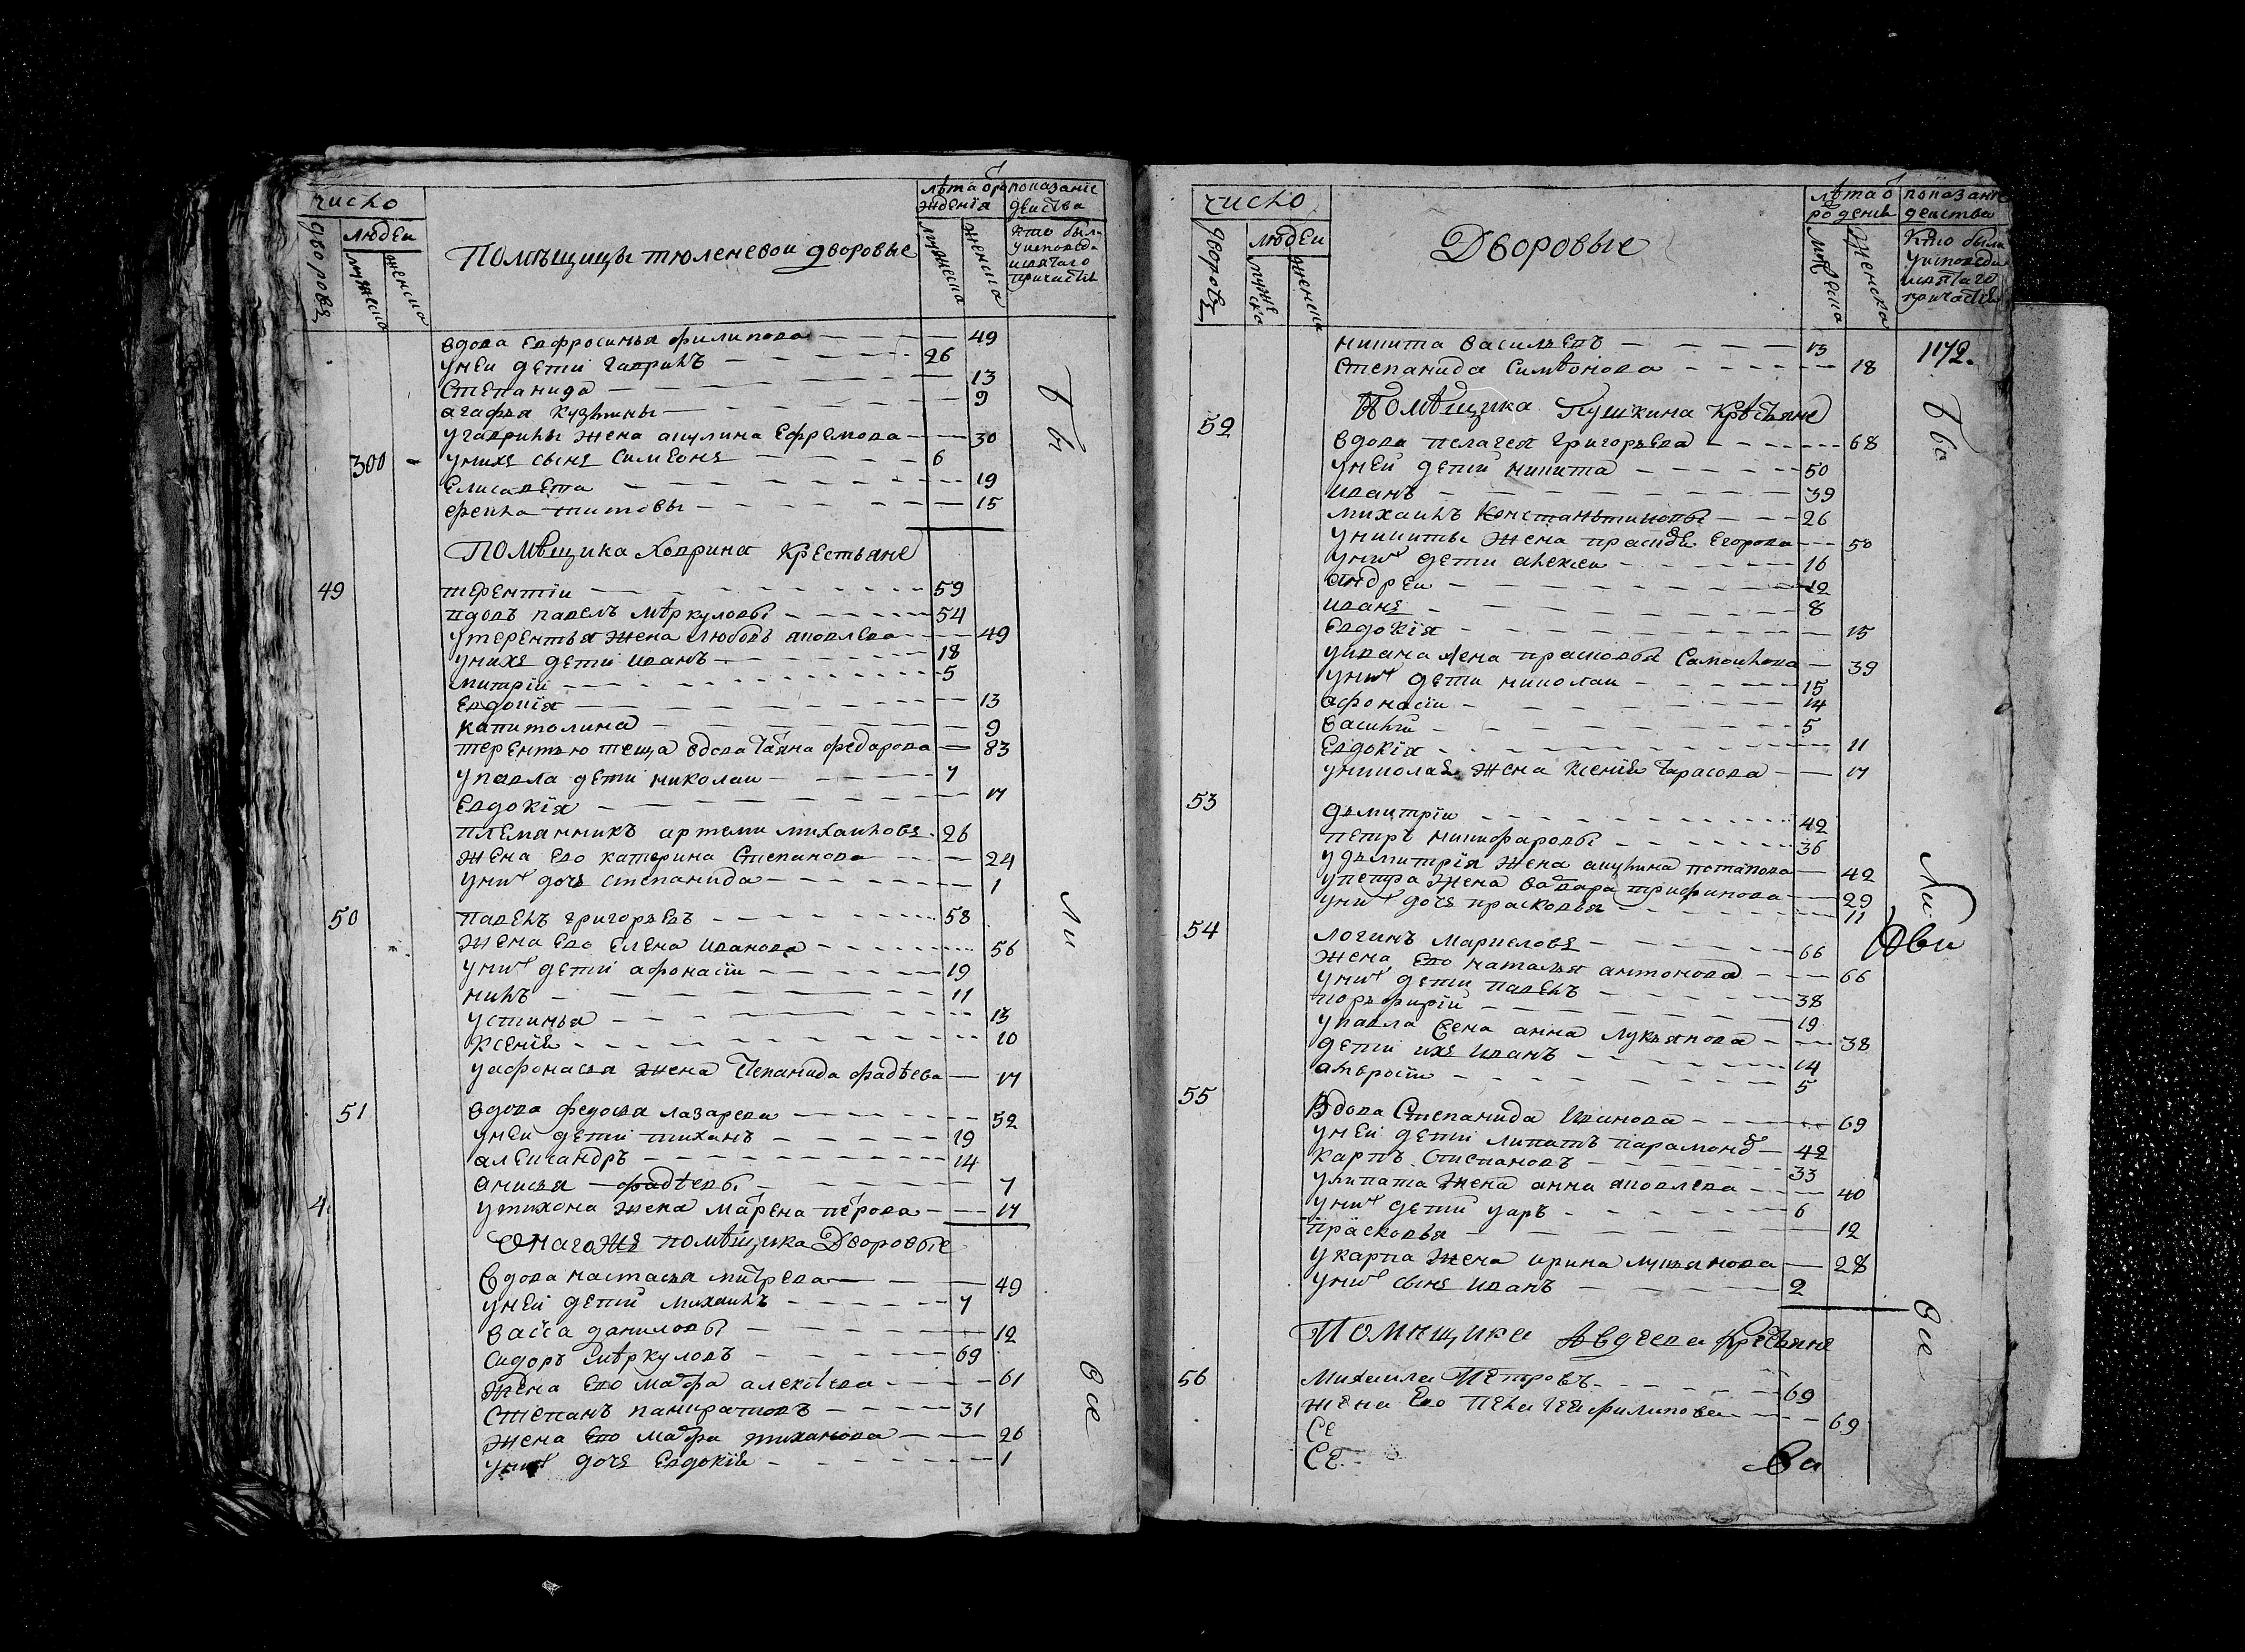 число
дворовъ
людеи
мужеска
женска
Помѣщицы тюленевои дворовые
лѣта о рождения
мужеска
женска
показание деиства
кто был у исповеди и святаго причастия
вдова Евфросинья филипова — 49
у неи дети гаврилъ — 26
Степанида — 13
агафья кузмины — 9
у гаврилы жена акулина Ефремова — 30
300 у нихъ сынъ Симеонъ — 6
Елисавета — 19
фекла титовы — 15
Помѣщика Ховрина Крестьяне
49 терентіи — 59
вдовъ павелъ мѣркуловы — 54
у терентья жена любовь яковлева — 49
у нихъ дети иванъ — 18
митріи — 5
Евдокія — 13
капитолина — 9
терентью теща вдова Татяна федарова — 83
у павла дети николаи — 7
Евдокія — 17
племянникъ артеми михаиловъ — 26
жена Ево катерина Степанова — 24
у них дочь степанида — 1
50 павелъ григорьевъ — 58
жена Ево Елена иванова — 56
у них дети афонасіи — 19
нилъ — 11
устинья — 13
Ксенія — 10
у афонасья жена Степанида фадѣева — 17
51 вдова федосья лазарева — 52
у неи дети тиханъ — 19
александръ — 14
анисья фадѣевы — 7
у тихона жена Матрена петрова — 17
Онагожъ помѣщика Дворовые
4
Вдова настасья митрева — 49
у неи дети михаилъ — 7
васса даниловы — 12
сидоръ мѣркуловъ — 69
жена Ево марфа алексѣева — 61
Степанъ панкратовъ — 31
жена Ево марфа тиханова — 26
у них дочь Евдокія — 1
бы
ли
вси
число
дворовъ
людеи
мужеска
женска
Дворовые
лѣта о рождени
мужеска
женска
показание деиства
кто были у исповеди и святаго причастия
никита васильевъ — 13
1172.
Степанида Симіонова — 18
Помѣщика Пушкина Крѣстьяне
52 вдова пелагея григорьева — 68
у неи дети никита — 50
иванъ — 39
михаилъ Константиновы — 26
у никиты жена прасковья Егорова — 50
у них дети алексеи — 16
андреи — 12
иванъ — 8
Евдокія — 15
у ивана жена прасковья Самоилова — 39
у них дети николаи — 15
афонасіи — 14
василіи — 5
Евдокія — 11
у николая жена Ксенія Тарасова — 17
53 дьмитріи — 42
петръ никифоровы — 36
у дьмитрія жена акулина потапова — 42
у петра жена варвара трифинова — 29
у них дочь прасковья — 11
54 логинъ маркеловъ — 66
жена Ево наталья антонова — 66
у них дети павелъ — 38
порьфиріи — 19
у павла жена анна Лукьянова — 38
дети ихъ иванъ — 14
амвросіи — 5
55 Вдова Степанида Иванова — 69
у неи дети липатъ парамоновъ — 42
карпъ Степановъ — 33
у липата жена анна яковлева — 40
у них дети уаръ — 6
прасковья — 12
у карпа жена ирина лукьянова — 28
у них сынъ иванъ — 2
Помищика Авдеева Крестьяне
56 Михаила Петровъ — 69
жена Ево Пелагея филипова — 69
СЕ
СЕ
бы
ли
вси